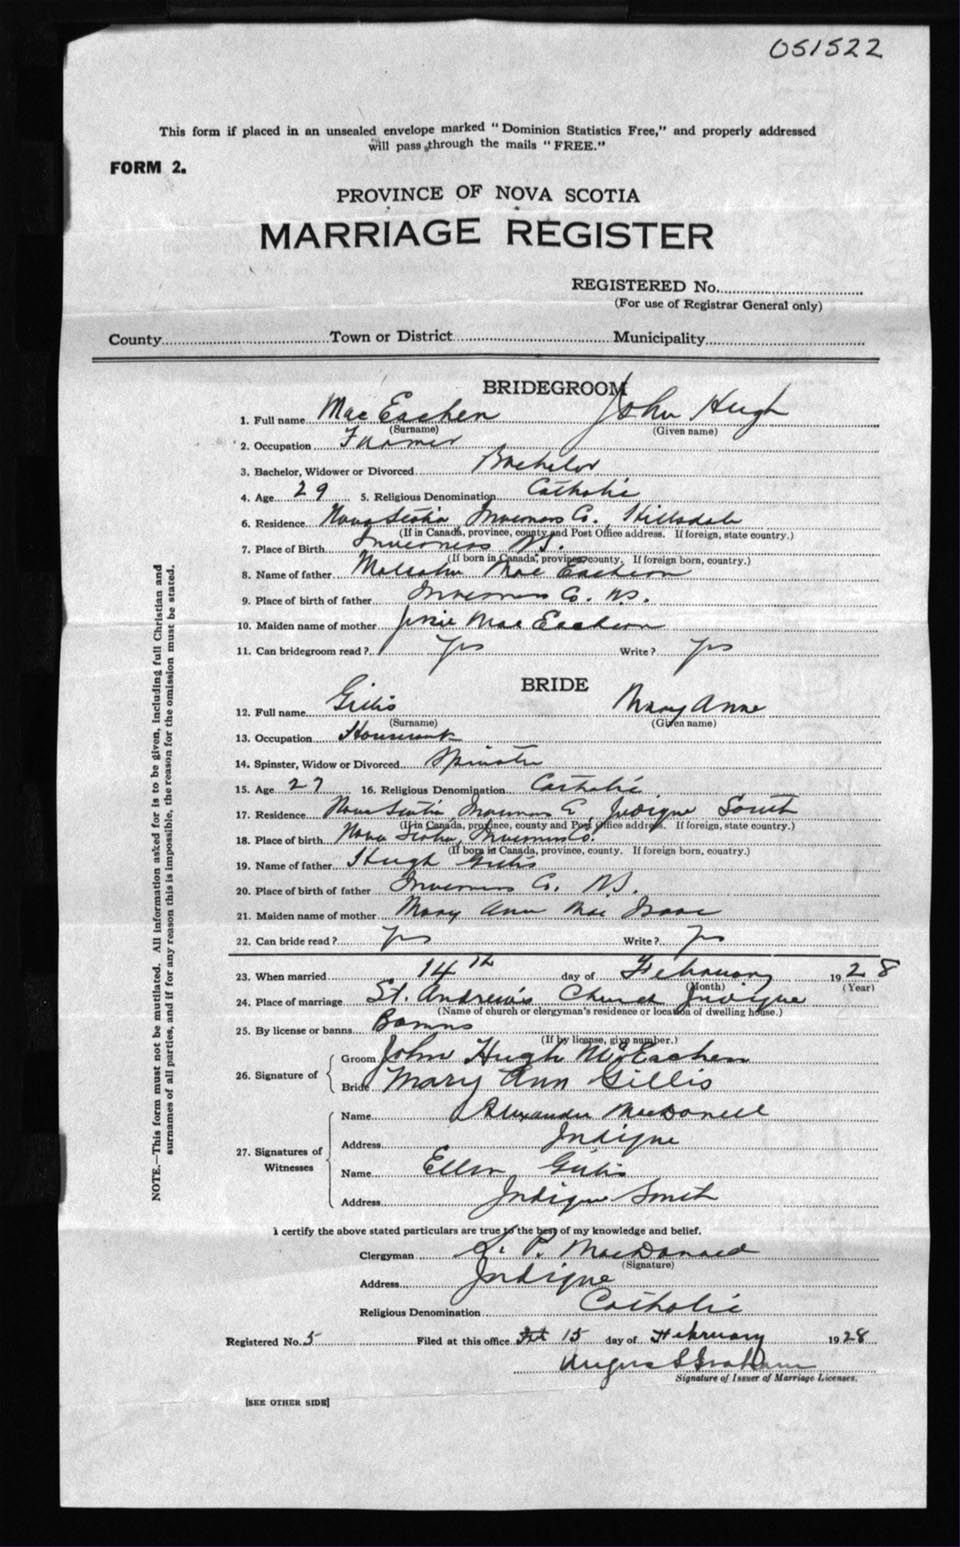 051522
This form if placed in an unsealed envelope marked "Dominion Statistics Free," and properly addressed
will pass through the mails "FREE."
FORM 2.
PROVINCE OF NOVA SCOTIA
MARRIAGE REGISTER
REGISTERED No.
(For use of Registrar General only)
County Town or District Municipality
BRIDEGROOM
1. Full name Mac Eachen John Hugh
(Surname) (Given name)
2. Occupation Farmer
3. Bachelor, Widower or Divorced Bachelor
4. Age 29 5. Religious Denomination Catholic
6. Residence Nova Scotia Inverness Co., Hillsdale
(If in Canada, province, county and Post Office address. If foreign, state country.)
7. Place of Birth Inverness N.S.
(If born in Canada, province, county. If foreign born, country.)
8. Name of father Malcolm Mac Eachern
9. Place of birth of father Inverness Co. N.S.
10. Maiden name of mother Jessie Mac Eachern
11. Can bridegroom read? Yes Write? Yes
BRIDE
12. Full name Gillis Mary Anne
(Surname) (Given name)
13. Occupation Housework
14. Spinster, Widow or Divorced Spinster
15. Age 27 16. Religious Denomination Catholic
17. Residence Nova Scotia, Inverness Co, Judique South
(If in Canada, province, county and Post Office address. If foreign, state country.)
18. Place of birth Nova Scotia, Inverness Co.
(If born in Canada, province, county. If foreign born, country.)
19. Name of father Hugh Gillis
20. Place of birth of father Inverness Co. N.S.
21. Maiden name of mother Mary Ann Mac Isaac
22. Can bride read? Yes Write? Yes
23. When married 14th day of February 1928
(Month) (Year)
24. Place of marriage St. Andrew's Church Judique
(Name of church or clergyman's residence or location of dwelling house.)
25. By license or banns Banns
(If by license, give number.)
26. Signature of Groom John Hugh McEachen
Bride Mary Ann Gillis
27. Signatures of Witnesses Name Alexander MacDonell
Address Judique
Name Ellen Gillis
Address Judique South
I certify the above stated particulars are true to the best of my knowledge and belief.
Clergyman P. MacDonald
(Signature)
Address Judique
Religious Denomination Catholic
Registered No. 5 Filed at this office 15 day of February 1928
Angus S Graham
Signature of Issuer of Marriage Licenses.
[SEE OTHER SIDE]
NOTE.—This form must not be mutilated. All information asked for is to be given, including full Christian and
surnames of all parties, and if for any reason this is impossible, the reason for the omission must be stated.